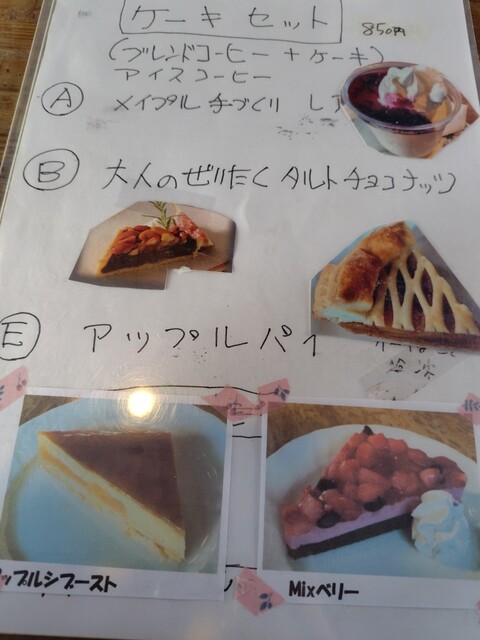 ケーキセット
850円
(ブレンドコーヒー + ケーキ)
アイスコーヒー
Ⓐ メイプル手づくり レア
Ⓑ 大人のぜいたく タルトチョコナッツ
Ⓔ アップルパイ
ップルシブースト
Mixベリー